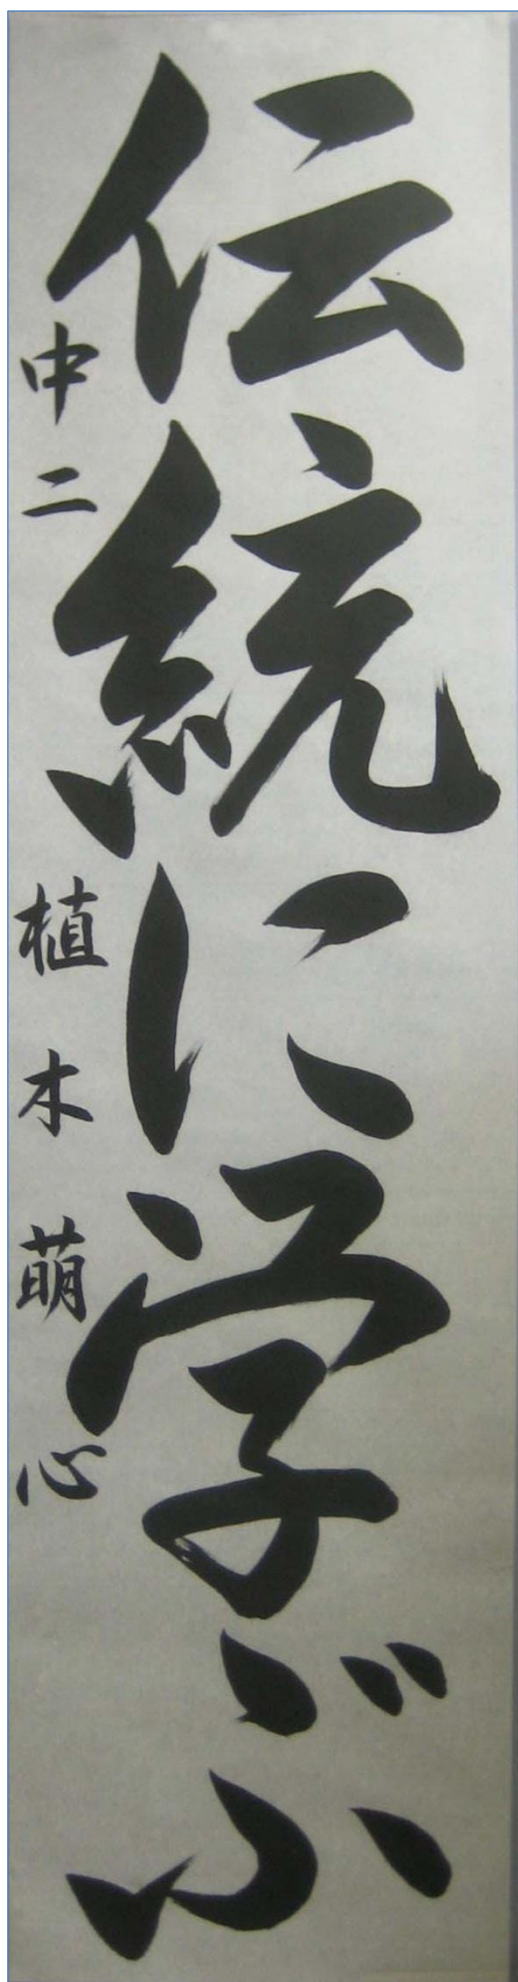 伝統に学ぶ
中二 植木萌心